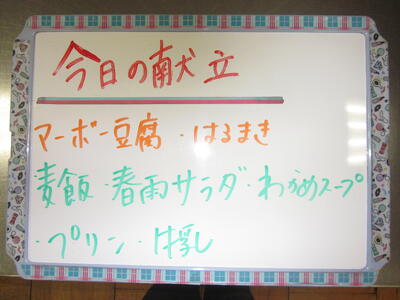 今日の献立
マーボー豆腐・はるまき
麦飯・春雨サラダ・わかめスープ
・プリン・牛乳